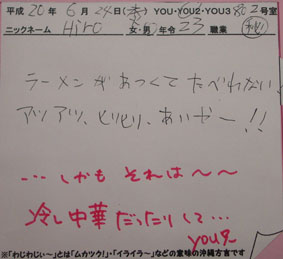 平成 20年 6月 24日(火) YOU・YOU2・YOU3 802号室
ニックネーム Hiro 女・男 年令 23 職業 秘
ラーメンがあつくてたべれない、
アツアツ、ヒリヒリ、あいがー!!
…しかもそれは〜〜
冷し中華だったりして…
you9
※「わじわじぃ〜」とは「ムカツク!」・「イライラ〜」などの意味の沖縄方言です